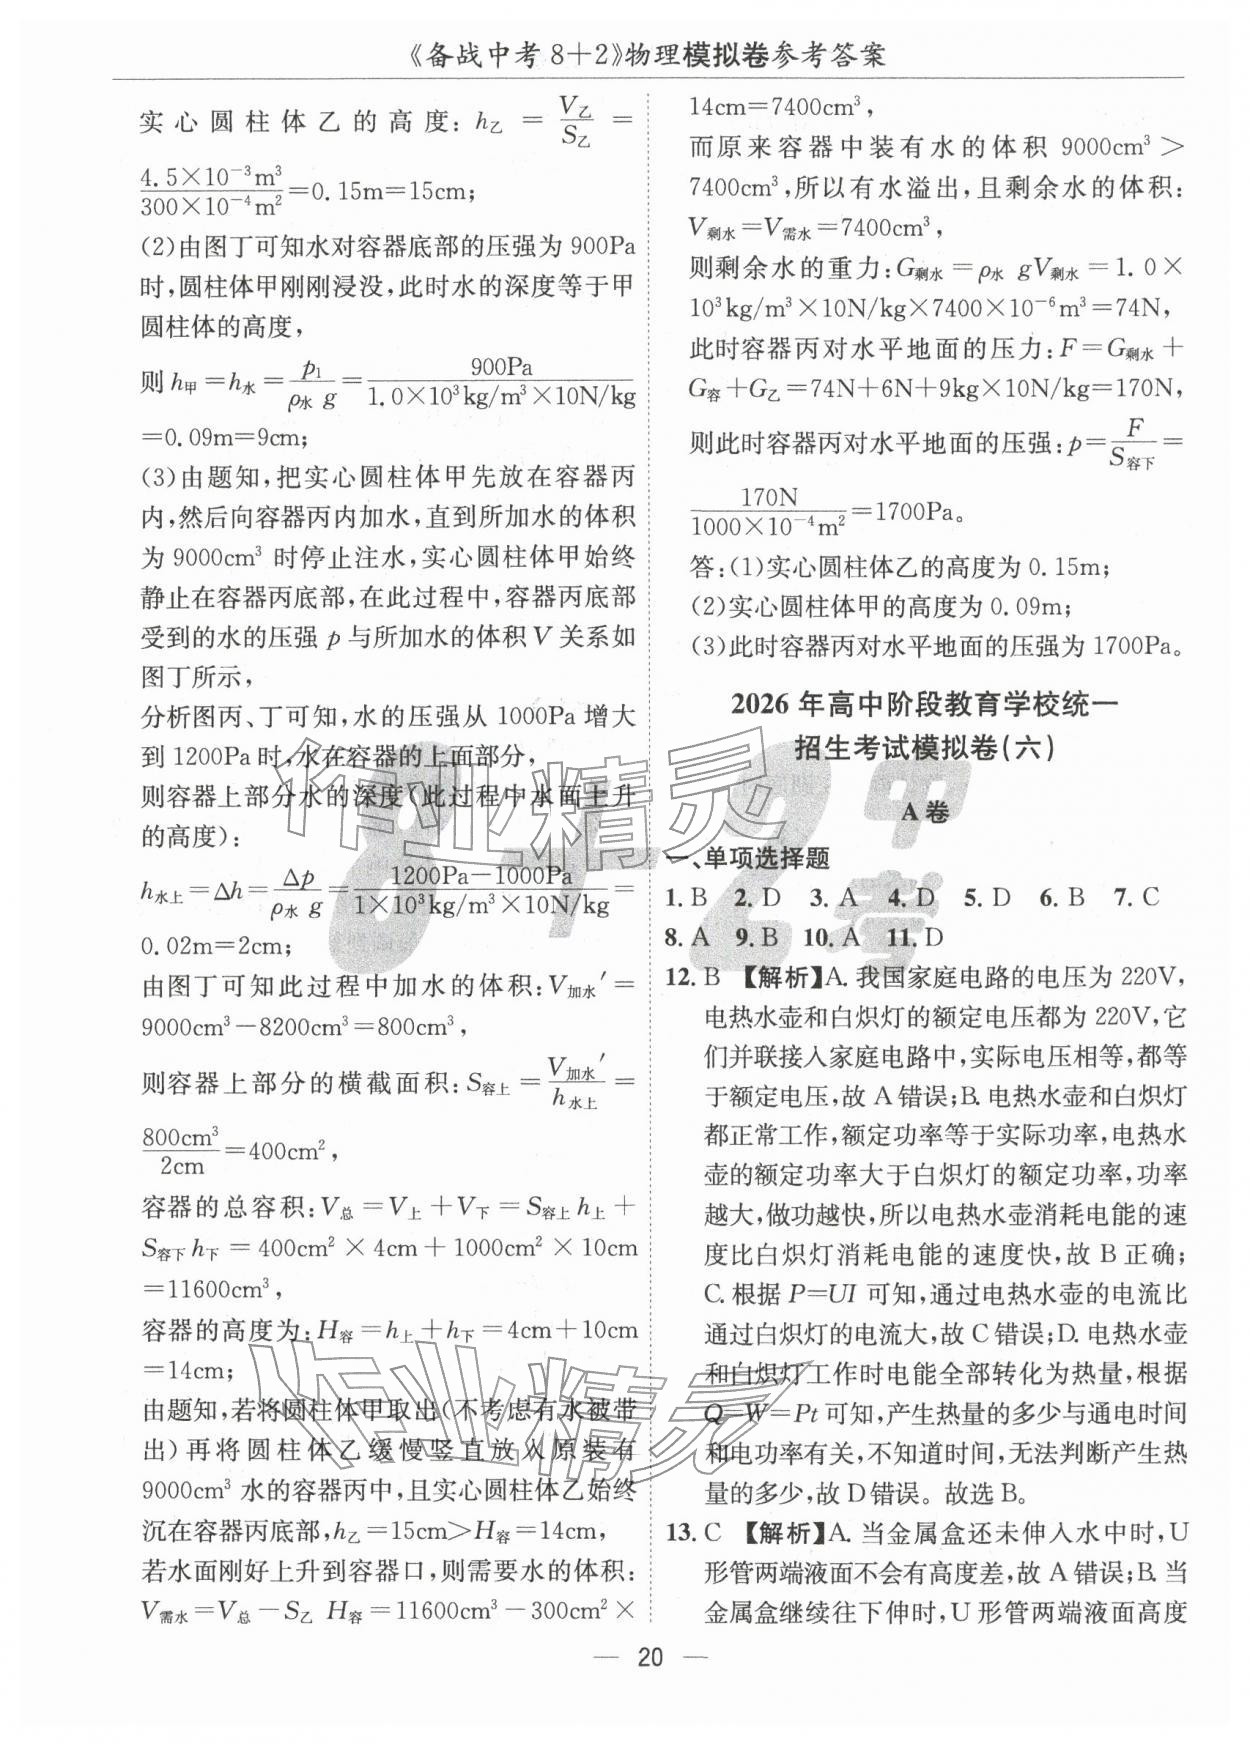 《备战中考8+2》物理模拟卷参考答案
实心圆柱体乙的高度:h乙=V乙/S乙=
4.5×10⁻³m³/300×10⁻⁴m²=0.15m=15cm;
(2)由图丁可知水对容器底部的压强为900Pa
时,圆柱体甲刚刚浸没,此时水的深度等于甲
圆柱体的高度,
则h甲=h水=p₁/ρ水g=900Pa/1.0×10³kg/m³×10N/kg
=0.09m=9cm;
(3)由题知,把实心圆柱体甲先放在容器丙
内,然后向容器丙内加水,直到所加水的体积
为9000cm³时停止注水,实心圆柱体甲始终
静止在容器丙底部,在此过程中,容器丙底部
受到的水的压强p与所加水的体积V关系如
图丁所示,
分析图丙、丁可知,水的压强从1000Pa增大
到1200Pa时,水在容器的上面部分,
则容器上部分水的深度(此过程中水面上升
的高度):
h水上=Δh=Δp/ρ水g=1200Pa−1000Pa/1×10³kg/m³×10N/kg=
0.02m=2cm;
由图丁可知此过程中加水的体积:V加水′=
9000cm³−8200cm³=800cm³,
则容器上部分的横截面积:S容上=V加水′/h水上=
800cm³/2cm=400cm²,
容器的总容积:V总=V上+V下=S容上h上+
S容下h下=400cm²×4cm+1000cm²×10cm
=11600cm³,
容器的高度为:H容=h上+h下=4cm+10cm
=14cm;
由题知,若将圆柱体甲取出(不考虑有水被带
出)再将圆柱体乙缓慢竖直放入原装有
9000cm³水的容器丙中,且实心圆柱体乙始终
沉在容器丙底部,h乙=15cm>H容=14cm,
若水面刚好上升到容器口,则需要水的体积:
V需水=V总−S乙H容=11600cm³−300cm²×
14cm=7400cm³,
而原来容器中装有水的体积9000cm³>
7400cm³,所以有水溢出,且剩余水的体积:
V剩水=V需水=7400cm³,
则剩余水的重力:G剩水=ρ水gV剩水=1.0×
10³kg/m³×10N/kg×7400×10⁻⁶m³=74N,
此时容器丙对水平地面的压力:F=G剩水+
G容+G乙=74N+6N+9kg×10N/kg=170N,
则此时容器丙对水平地面的压强:p=F/S容下=
170N/1000×10⁻⁴m²=1700Pa。
答:(1)实心圆柱体乙的高度为0.15m;
(2)实心圆柱体甲的高度为0.09m;
(3)此时容器丙对水平地面的压强为1700Pa。
2026年高中阶段教育学校统一
招生考试模拟卷(六)
A卷
一、单项选择题
1.B 2.D 3.A 4.D 5.D 6.B 7.C
8.A 9.B 10.A 11.D
12.B 【解析】A.我国家庭电路的电压为220V,
电热水壶和白炽灯的额定电压都为220V,它
们并联接入家庭电路中,实际电压相等,都等
于额定电压,故A错误;B.电热水壶和白炽灯
都正常工作,额定功率等于实际功率,电热水
壶的额定功率大于白炽灯的额定功率,功率
越大,做功越快,所以电热水壶消耗电能的速
度比白炽灯消耗电能的速度快,故B正确;
C.根据P=UI可知,通过电热水壶的电流比
通过白炽灯的电流大,故C错误;D.电热水壶
和白炽灯工作时电能全部转化为热量,根据
Q=W=Pt可知,产生热量的多少与通电时间
和电功率有关,不知道时间,无法判断产生热
量的多少,故D错误。故选B。
13.C 【解析】A.当金属盒还未伸入水中时,U
形管两端液面不会有高度差,故A错误;B.当
金属盒继续往下伸时,U形管两端液面高度
— 20 —
作业精灵
作业精灵
8+2
中考